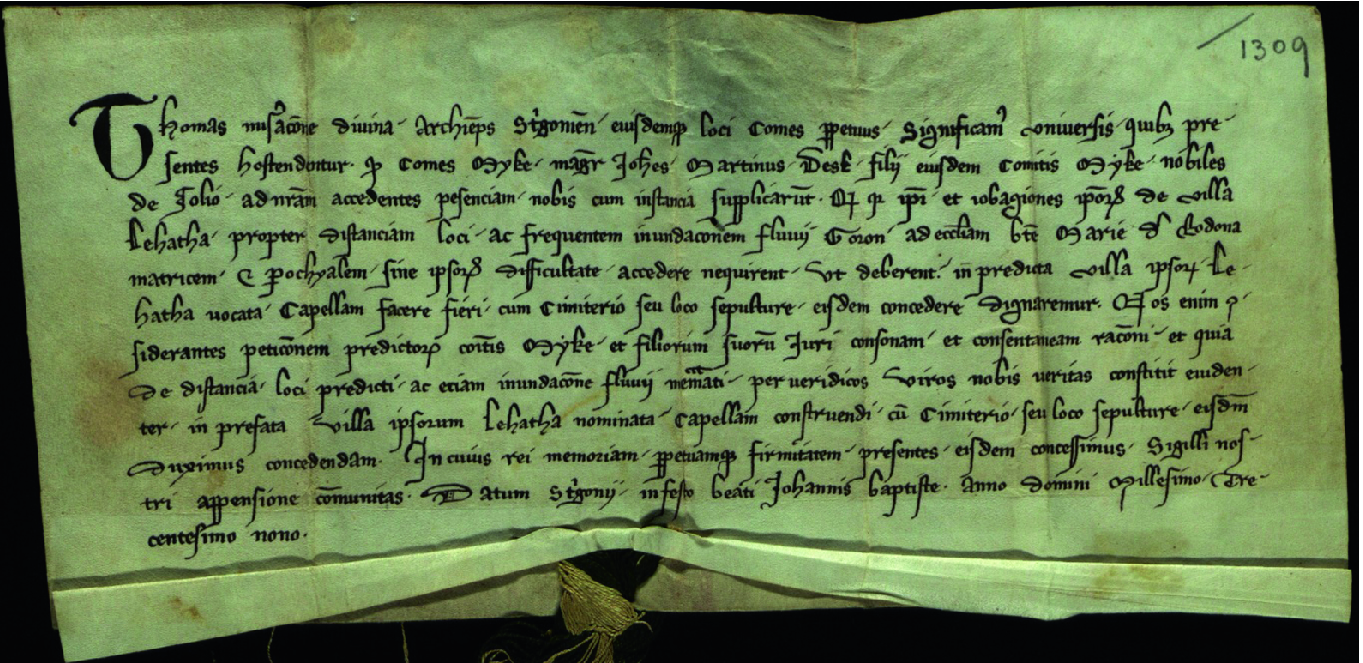 1309
Thomas mis͛acōne divina · Archiep̄s St͛gonien̄ · eiusdemqꝫ loci Comes ꝑpetuus · Significam᷒ vniversis · quibꝫ pre-
sentes hostendentur · ꝙ Comes Myke · mag̅r Joh̅es · Martinus · Desk · filii eiusdem Comitis Myke · nobiles
de Jolio · ad nr̅am accedentes pesenciam · nobis cum instancia supplicaru̅t · qꝫ ip̅i · et iobagiones ip̅oꝝ de villa
Lehatha · propter distanciam loci · ac frequentem inundaco̅nem fluvij Goron · ad eccl̅iam bt̅e Marie d̅ Rodona
matricem · ⁊ ꝑochyalem · sine ipsoꝝ difficultate · accedere nequirent · vt deberent · in predicta villa ipsoꝝ · Le-
hatha vocata · Capellam facere fieri · cum Cimiterio seu loco sepulture · eisdem concedere dignaremur · Nos enim ꝯ-
siderantes petico̅nem predictoꝝ coi̅tis Myke · et filiorum suoru̅ Juri consonam · et consentaneam raco̅ni · et quia
de distancia · loci predicti · ac eciam inundaco̅ne fluvij mem̅ati · per veridicos viros nobis veritas constitit euiden-
ter · in prefata villa ipsorum Lehatha nominata · Capellam construendi · cu̅ Cimiterio · seu loco sepulture · eisd̅m
duximus concedendam · In cuius rei memoriam · ꝑpetuamqꝫ firmitatem · presentes · eisdem concessimus · Sigilli nos-
tri appensione co̅munitas · Datum St͛gonij · in festo beati Johannis baptiste · anno domini Millesimo · Tre-
centesimo nono ·